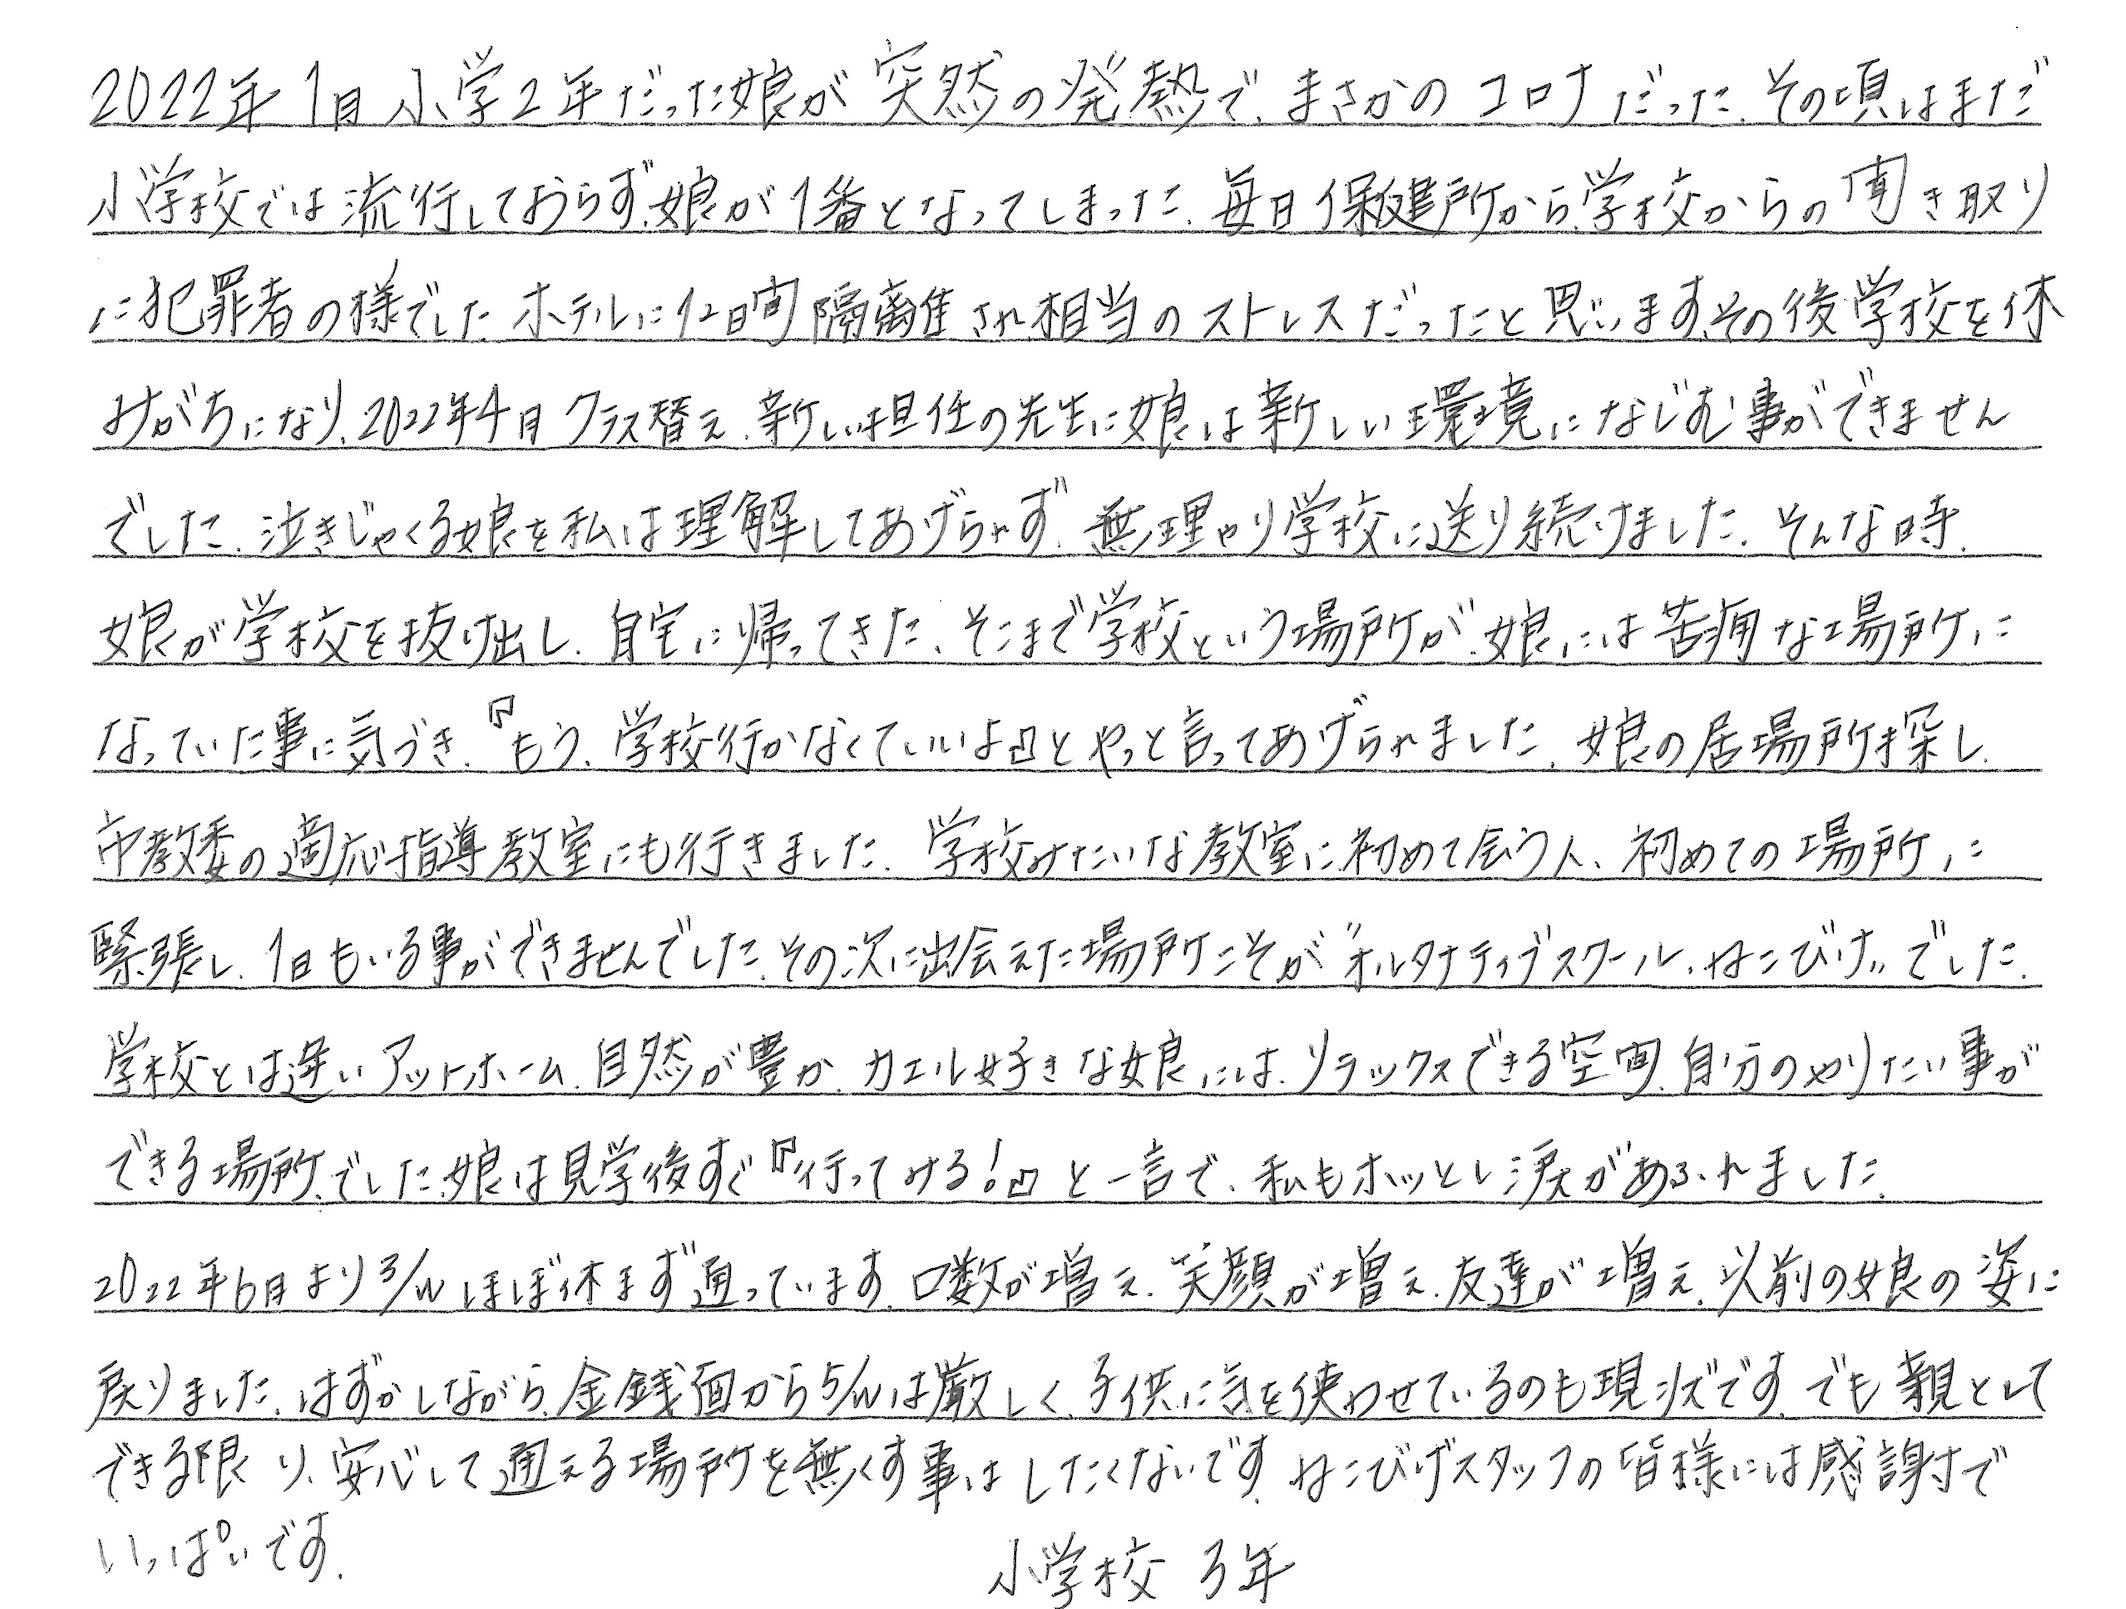 2022年1月小学2年だった娘が突然の発熱で、まさかのコロナだった、その頃はまだ
小学校では流行しておらず、娘が1番となってしまった、毎日保健所から、学校からの聞き取り
に犯罪者の様でした、ホテルに12日間隔離され相当のストレスだったと思います、その後学校を休
みがちになり、2022年4月クラス替え、新しい担任の先生に娘は新しい環境になじむ事ができません
でした、泣きじゃくる娘を私は理解してあげられず、無理やり学校に送り続けました、そんな時、
娘が学校を抜け出し、自宅に帰ってきた、そこまで学校という場所が、娘には苦痛な場所に
なっていた事に気づき、『もう、学校行かなくていいよ』とやっと言ってあげられました、娘の居場所探し、
市教委の適応指導教室にも行きました、学校みたいな教室に初めて会う人、初めての場所に
緊張し、1日もいる事ができませんでした、その次に出会えた場所こそが〝オルタナティブスクール、ねこびげ〟でした、
学校とは違いアットホーム、自然が豊か、カエル好きな娘には、リラックスできる空間、自分のやりたい事が
できる場所、でした、娘は見学後すぐ『行ってみる！』と一言で、私もホッとし涙があふれました、
2022年6月より3/Wほぼ休まず通っています、口数が増え、笑顔が増え、友達が増え、以前の娘の姿に
戻りました、はずかしながら、金銭面から5/Wは厳しく、子供に気を使わせているのも現状です、でも親として
できる限り、安心して通える場所を無くす事はしたくないです、ねこびげスタッフの皆様には感謝で
いっぱいです、
小学校 3年